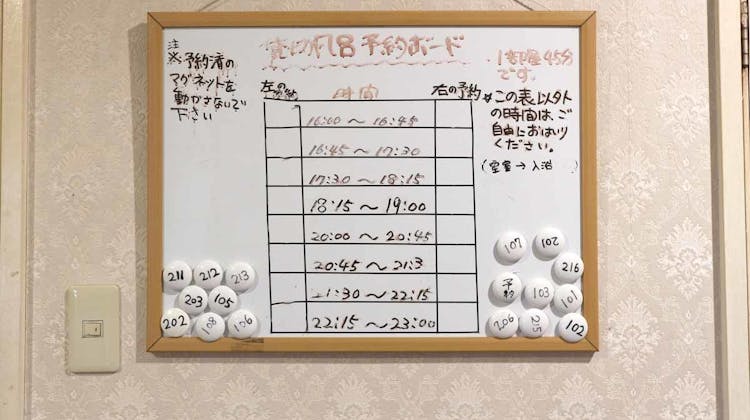 貸切風呂予約ボード
注
※予約済の
マグネットを
動かさないで
下さい
1部屋45分
です。
左の予約
時間
右の予約
16:00～16:45
16:45～17:30
17:30～18:15
18:15～19:00
20:00～20:45
20:45～21:3
21:30～22:15
22:15～23:00
※この表以外
の時間は、ご
自由におはいり
ください。
(空室→入浴 )
211
212
213
203
105
202
108
106
107
102
216
予約
103
101
206
215
102